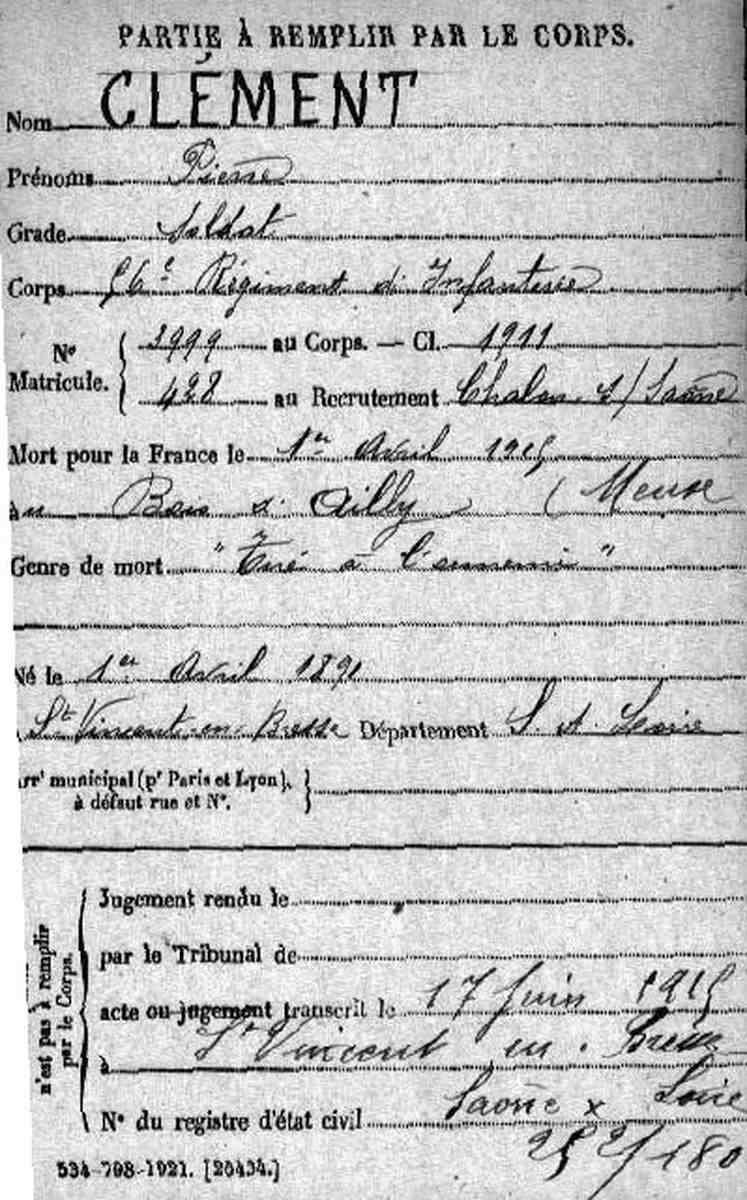 PARTIE À REMPLIR PAR LE CORPS.
Nom CLÉMENT
Prénoms Pierre
Grade Soldat
Corps 56e Régiment d'Infanterie
No Matricule. { 3999 au Corps. — Cl. 1911
428 au Recrutement Chalon s/Saône
Mort pour la France le 1er Avril 1915
au Bois d'Ailly (Meuse
Genre de mort "Tué à l'ennemi"
Né le 1er Avril 1891
St Vincent-en-Bresse Département S. et Loire
arrt municipal (pr Paris et Lyon), }
à défaut rue et No.
n'est pas à remplir
par le Corps.
Jugement rendu le
par le Tribunal de
acte ou jugement transcrit le 17 Juin 1915
à St Vincent en Bresse
No du registre d'état civil Saône & Loire
252/180
534-708-1921. [26434.]